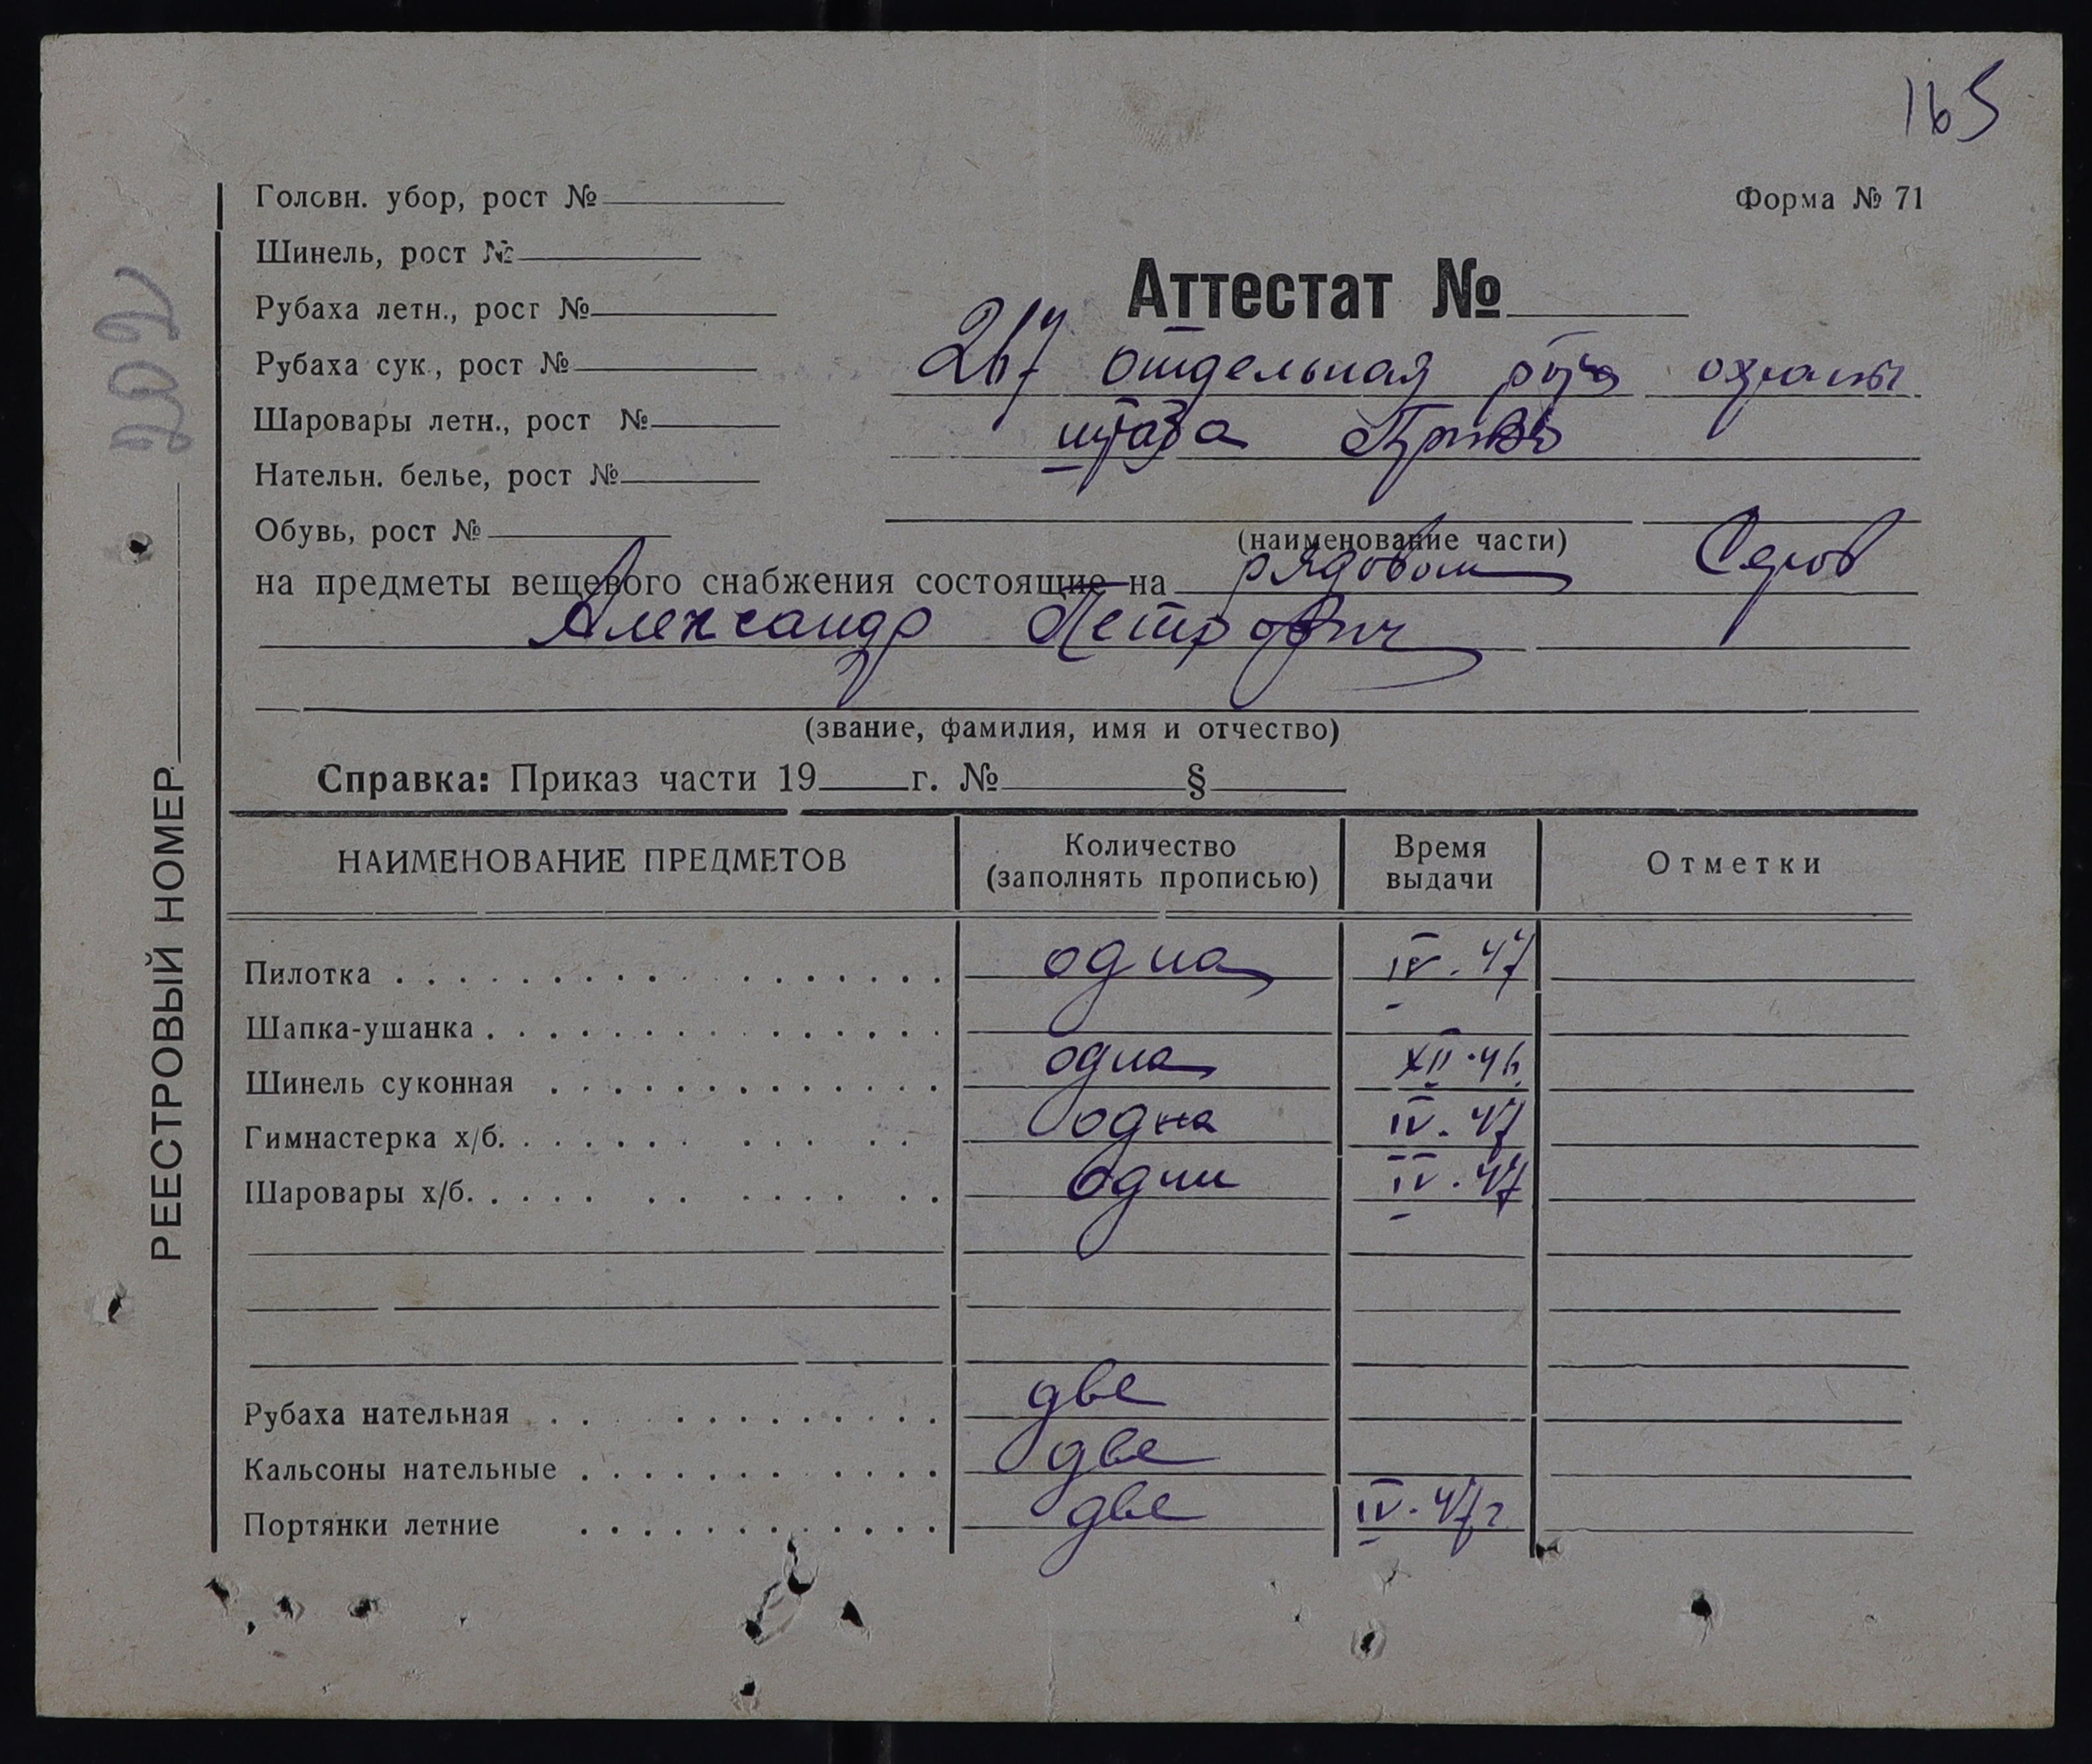 165
Форма № 71
Головн. убор, рост №
Шинель, рост №
Рубаха летн., рост №
Рубаха сук., рост №
Шаровары летн., рост №
Нательн. белье, рост №
Обувь, рост №
Аттестат №
267 отдельная рота охраны
штаба ПриВО
(наименование части)
на предметы вещевого снабжения состоящие на рядовом Серов
Александр Петрович
(звание, фамилия, имя и отчество)
Справка: Приказ части 19 г. № §
РЕЕСТРОВЫЙ НОМЕР 202
НАИМЕНОВАНИЕ ПРЕДМЕТОВ Количество (заполнять прописью) Время выдачи Отметки
Пилотка одна IV. 47
Шапка-ушанка
Шинель суконная одна XII. 46
Гимнастерка х/б. одна IV. 47
Шаровары х/б. одни IV. 47
Рубаха нательная две
Кальсоны нательные две
Портянки летние две IV. 47г